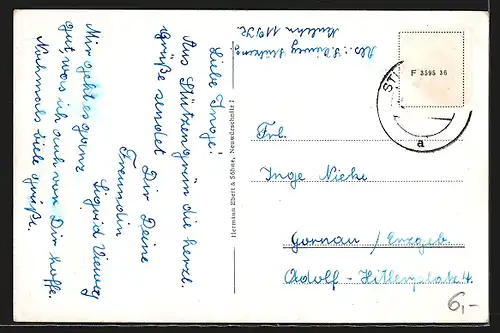 Liebe Inge!
Aus Stützengrün die herzl.
Grüße sendet Dir Deine
Freundin
Sigrid Vieweg
Mir geht es ganz
gut was ich auch von Dir hoffe.
Nochmals viele Grüße.
Hermann Ebert & Söhne, Neuwürschnitz
F 3595 36
ST
a
Frl.
Inge
Gornau / Erzgeb.
Adolf-Hitlerplatz 4.
6,-